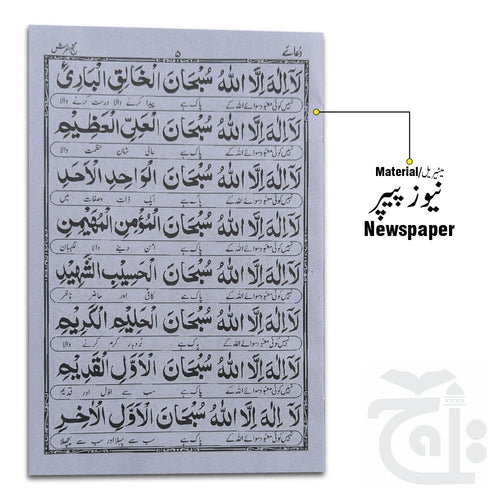 دُعائے ۵ گنج العرش
لَآ اِلٰهَ اِلَّا اللّٰهُ سُبْحَانَ الْخَالِقِ الْبَارِئِ
نہیں کوئی معبود سوائے اللہ کے پاک ہے پیدا کرنے والا درست کرنے والا
لَآ اِلٰهَ اِلَّا اللّٰهُ سُبْحَانَ الْعَلِيِّ الْعَظِيْمِ
نہیں کوئی معبود سوائے اللہ کے پاک ہے عالی شان عظمت والا
لَآ اِلٰهَ اِلَّا اللّٰهُ سُبْحَانَ الْوَاحِدِ الْاَحَدِ
نہیں کوئی معبود سوائے اللہ کے پاک ہے ایک ذات وصفات میں
لَآ اِلٰهَ اِلَّا اللّٰهُ سُبْحَانَ الْمُؤْمِنِ الْمُهَيْمِنِ
نہیں کوئی معبود سوائے اللہ کے پاک ہے امن دینے والا نگہبان
لَآ اِلٰهَ اِلَّا اللّٰهُ سُبْحَانَ الْحَسِيْبِ الشَّهِيْدِ
نہیں کوئی معبود سوائے اللہ کے پاک ہے کافی اور حاضر
لَآ اِلٰهَ اِلَّا اللّٰهُ سُبْحَانَ الْحَلِيْمِ الْكَرِيْمِ
نہیں کوئی معبود سوائے اللہ کے پاک ہے بُردبار کرم کرنے والا
لَآ اِلٰهَ اِلَّا اللّٰهُ سُبْحَانَ الْاَوَّلِ الْقَدِيْمِ
نہیں کوئی معبود سوائے اللہ کے پاک ہے سب سے اوّل اور قدیم
لَآ اِلٰهَ اِلَّا اللّٰهُ سُبْحَانَ الْاَوَّلِ الْاٰخِرِ
نہیں کوئی معبود سوائے اللہ کے پاک ہے سب سے پہلا اور سب سے پچھلا
Material/میٹیریل
نیوز پیپر
Newspaper